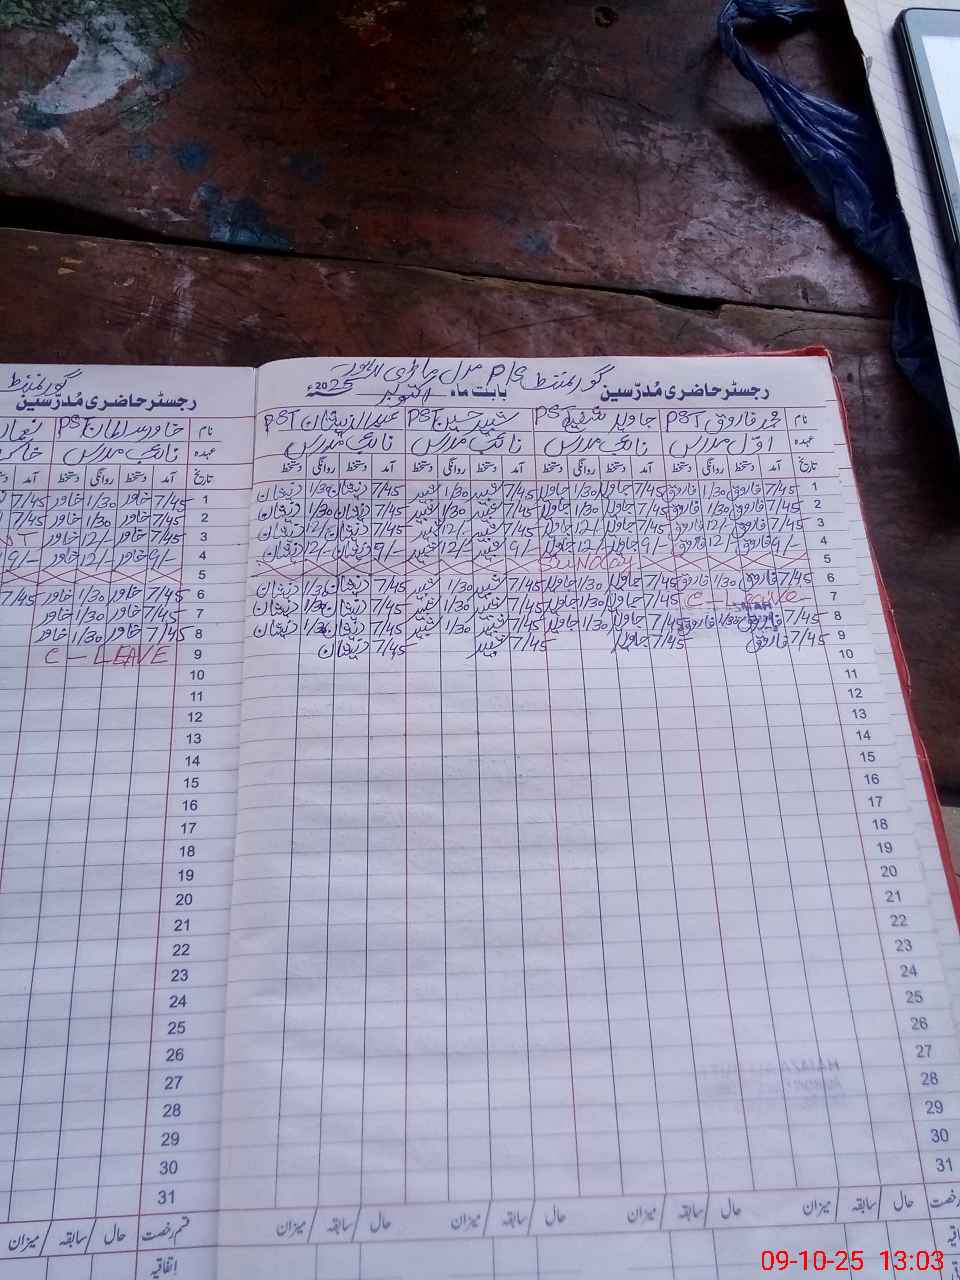 گورنمنٹ P/S مڈل
رجسٹر حاضری مُدرّسین بابت ماہ اکتوبر 2025ء
نام محمد فاروق PST جاوید شریف PST شبیر حسین PST عبدالذیشان PST
عہدہ اول مدرس نائب مدرس نائب مدرس نائب مدرس
تاریخ آمد دستخط روانگی دستخط آمد دستخط روانگی دستخط آمد دستخط روانگی دستخط آمد دستخط روانگی دستخط
1 7/45 فاروق 1/30 فاروق 7/45 جاوید 1/30 جاوید 7/45 شبیر 1/30 شبیر 7/45 ذیشان 1/30 ذیشان
2 7/45 فاروق 1/30 فاروق 7/45 جاوید 1/30 جاوید 7/45 شبیر 1/30 شبیر 7/45 ذیشان 1/30 ذیشان
3 7/45 فاروق 12/- فاروق 7/45 جاوید 12/- جاوید 7/45 شبیر 12/- شبیر 7/45 ذیشان 12/- ذیشان
4 9/- فاروق 12/- فاروق 9/- جاوید 12/- جاوید 9/- شبیر 12/- شبیر 9/- ذیشان 12/- ذیشان
5 SUNDAY
6 7/45 فاروق 1/30 فاروق 7/45 جاوید 1/30 جاوید 7/45 شبیر 1/30 شبیر 7/45 ذیشان 1/30 ذیشان
7 C - Leave 7/45 جاوید 1/30 جاوید 7/45 شبیر 1/30 شبیر 7/45 ذیشان 1/30 ذیشان
8 7/45 فاروق 1/30 فاروق 7/45 جاوید 1/30 جاوید 7/45 شبیر 1/30 شبیر 7/45 ذیشان 1/30 ذیشان
9 7/45 فاروق 7/45 جاوید 7/45 شبیر 7/45 ذیشان
10
11
12
13
14
15
16
17
18
19
20
21
22
23
24
25
26
27
28
29
30
31
حال سابقہ میزان حال سابقہ میزان حال سابقہ میزان حال سابقہ میزان
گورنمنٹ
رجسٹر حاضری مُدرّسین
نام خاور سلمان PST
عہدہ نائب مدرس
تاریخ آمد دستخط روانگی دستخط آمد دستخط
1 7/45 خاور 1/30 خاور 7/45
2 7/45 خاور 1/30 خاور 7/45
3 7/45 خاور 12/- خاور
4 9/- خاور 12/- خاور 9/-
5
6 7/45 خاور 1/30 خاور 7/45
7 7/45 خاور 1/30 خاور
8 7/45 خاور 1/30 خاور
9 C - LEAVE
10
11
12
13
14
15
16
17
18
19
20
21
22
23
24
25
26
27
28
29
30
31
قسم رخصت حال سابقہ میزان
اتفاقیہ
09-10-25 13:03